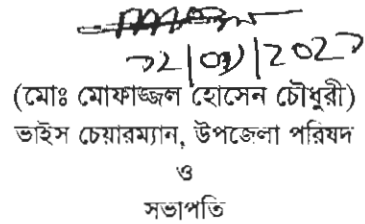 (মোঃ মোফাজ্জল হোসেন চৌধুরী)
ভাইস চেয়ারম্যান, উপজেলা পরিষদ
ও
সভাপতি